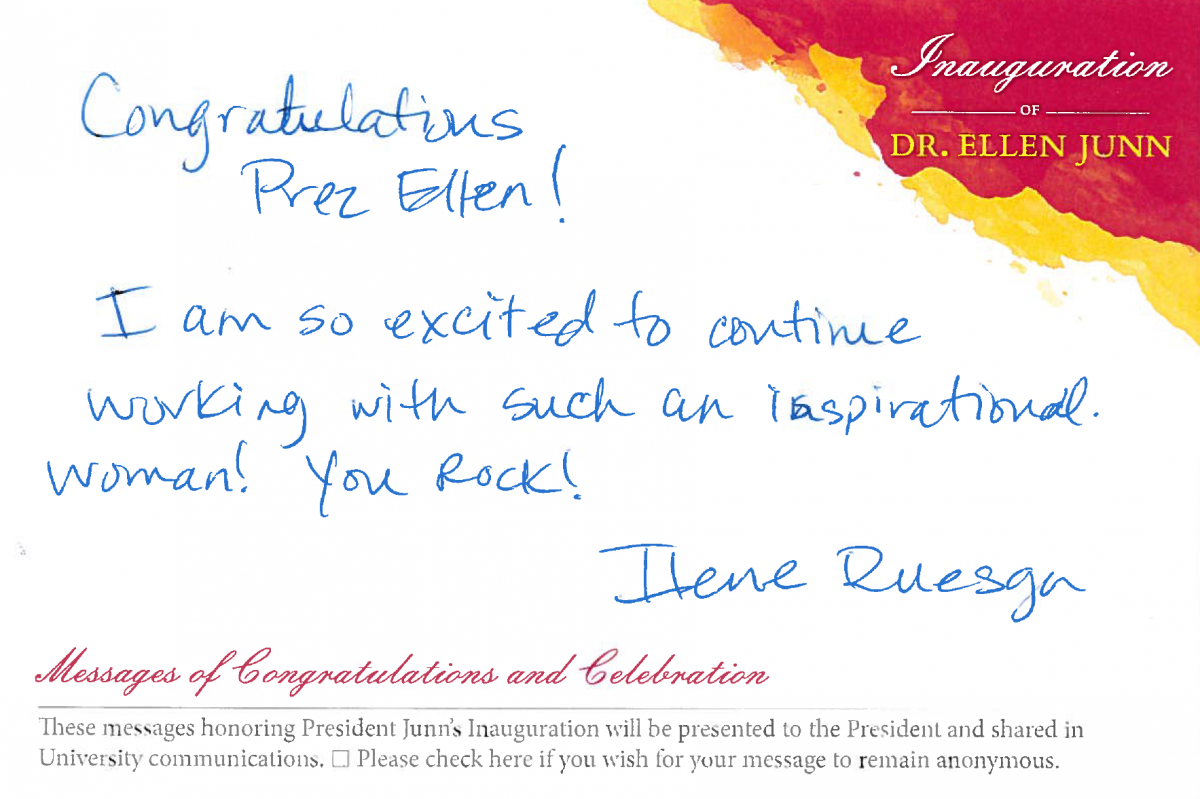 Inauguration
OF
DR. ELLEN JUNN
Congratulations
Prez Ellen!
I am so excited to continue
working with such an inspirational.
woman! You Rock!
Ilene Ruesga
Messages of Congratulations and Celebration
These messages honoring President Junn's Inauguration will be presented to the President and shared in
University communications. ☐ Please check here if you wish for your message to remain anonymous.